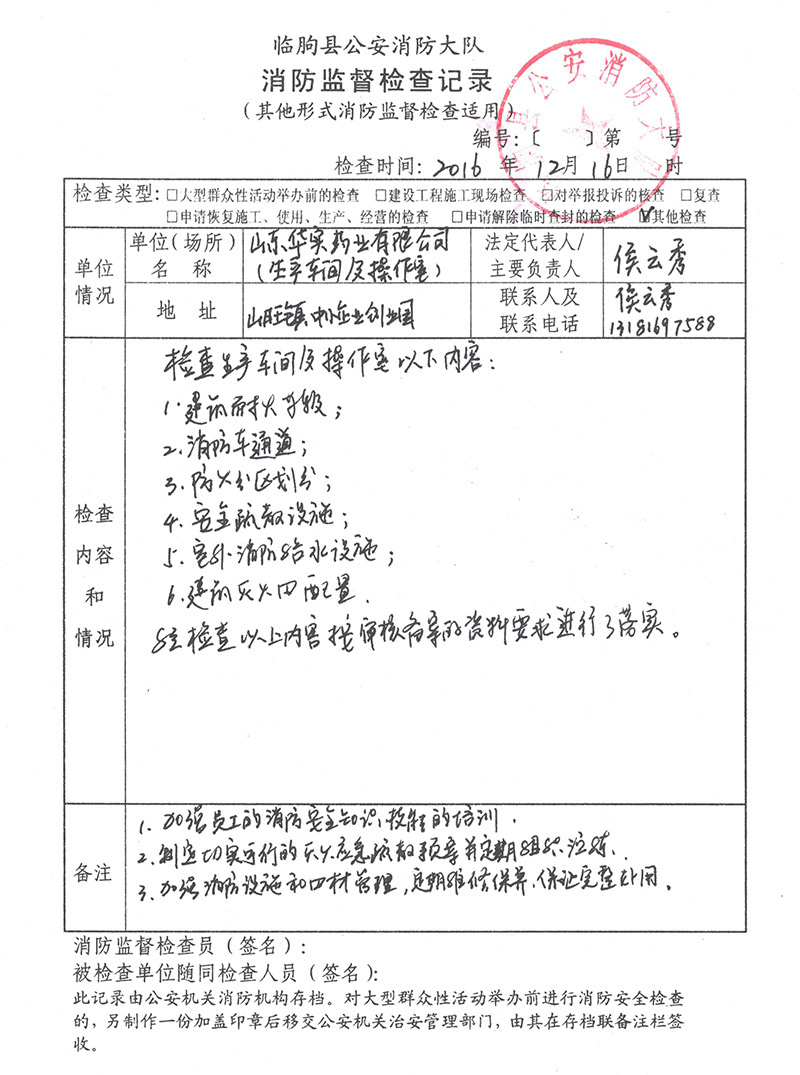 临朐县公安消防大队
消防监督检查记录
（其他形式消防监督检查适用）
县公安消防大队
编号：〔 〕第 号
检查时间：2016年12月16日 时
检查类型：□大型群众性活动举办前的检查 □建设工程施工现场检查 □对举报投诉的核查 □复查
□申请恢复施工、使用、生产、经营的检查 □申请解除临时查封的检查 ☑其他检查
单位情况
单位（场所）名称
山东华实药业有限公司
（生产车间及操作室）
法定代表人/主要负责人
侯云秀
地址
山旺镇中小企业创业园
联系人及联系电话
侯云秀
13181697588
检查内容和情况
检查生产车间及操作室以下内容：
1.建筑耐火等级；
2.消防车通道；
3.防火分区划分；
4.安全疏散设施；
5.室外消防给水设施；
6.建筑灭火四配置.
经检查以上内容按审核备案的资料要求进行了落实。
备注
1.加强员工的消防安全知识、技能的培训.
2.制定切实可行的灭火应急疏散预案并定期组织演练.
3.加强消防设施和四材管理，定期维修保养、保证完整好用。
消防监督检查员（签名）：
被检查单位随同检查人员（签名）：
此记录由公安机关消防机构存档。对大型群众性活动举办前进行消防安全检查
的，另制作一份加盖印章后移交公安机关治安管理部门，由其在存档联备注栏签
收。